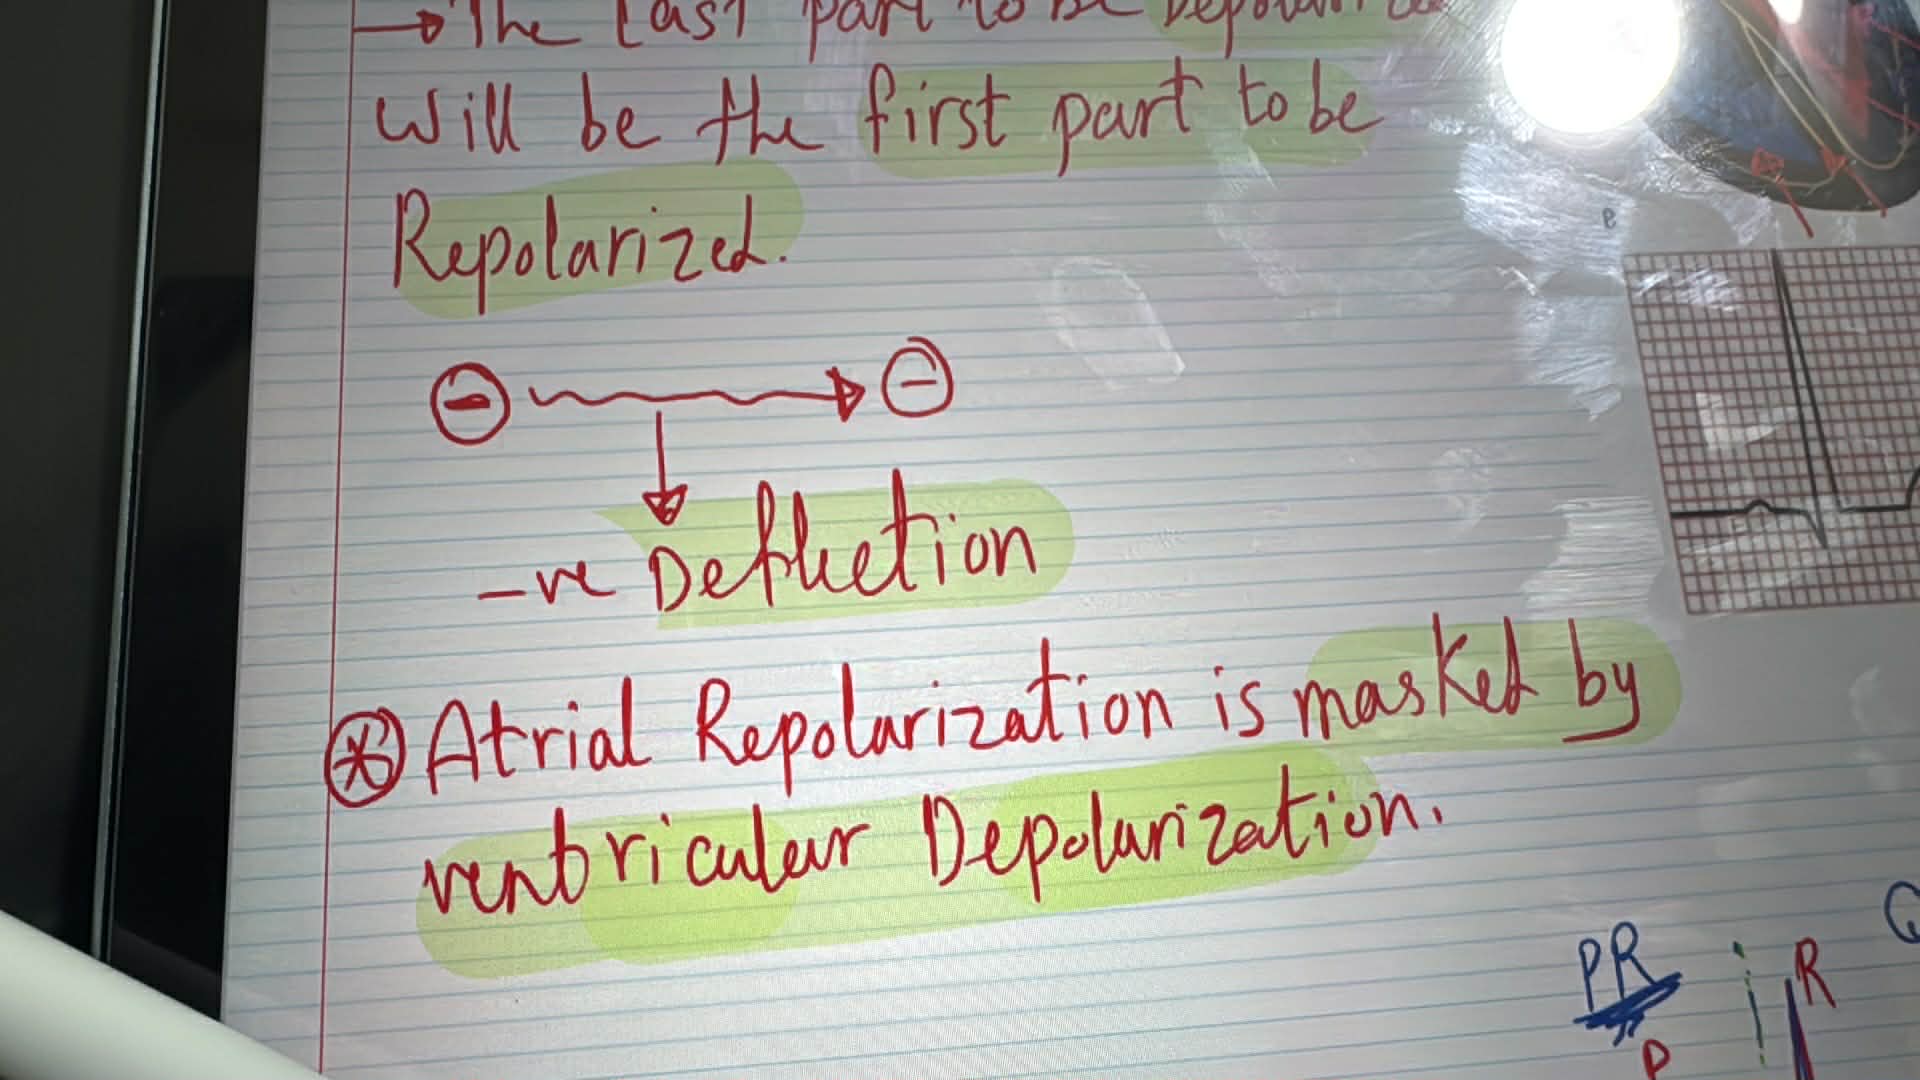 → The last part to be Depolarized
will be the first part to be
Repolarized.
⊖ → ⊖
-ve Deflection
⊛ Atrial Repolarization is masked by
ventricular Depolarization.
e
PR
R
P
Q